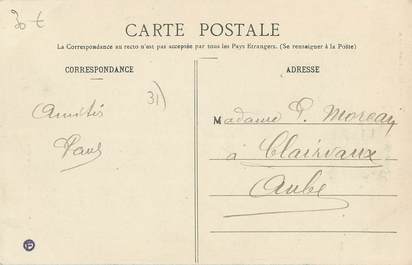 30 €
CARTE POSTALE
La Correspondance au recto n'est pas acceptée par tous les Pays Etrangers. (Se renseigner à la Poste)
CORRESPONDANCE
ADRESSE
31)
Amitiés
Paul
Madame P. Moreau
à Clairvaux
Aube